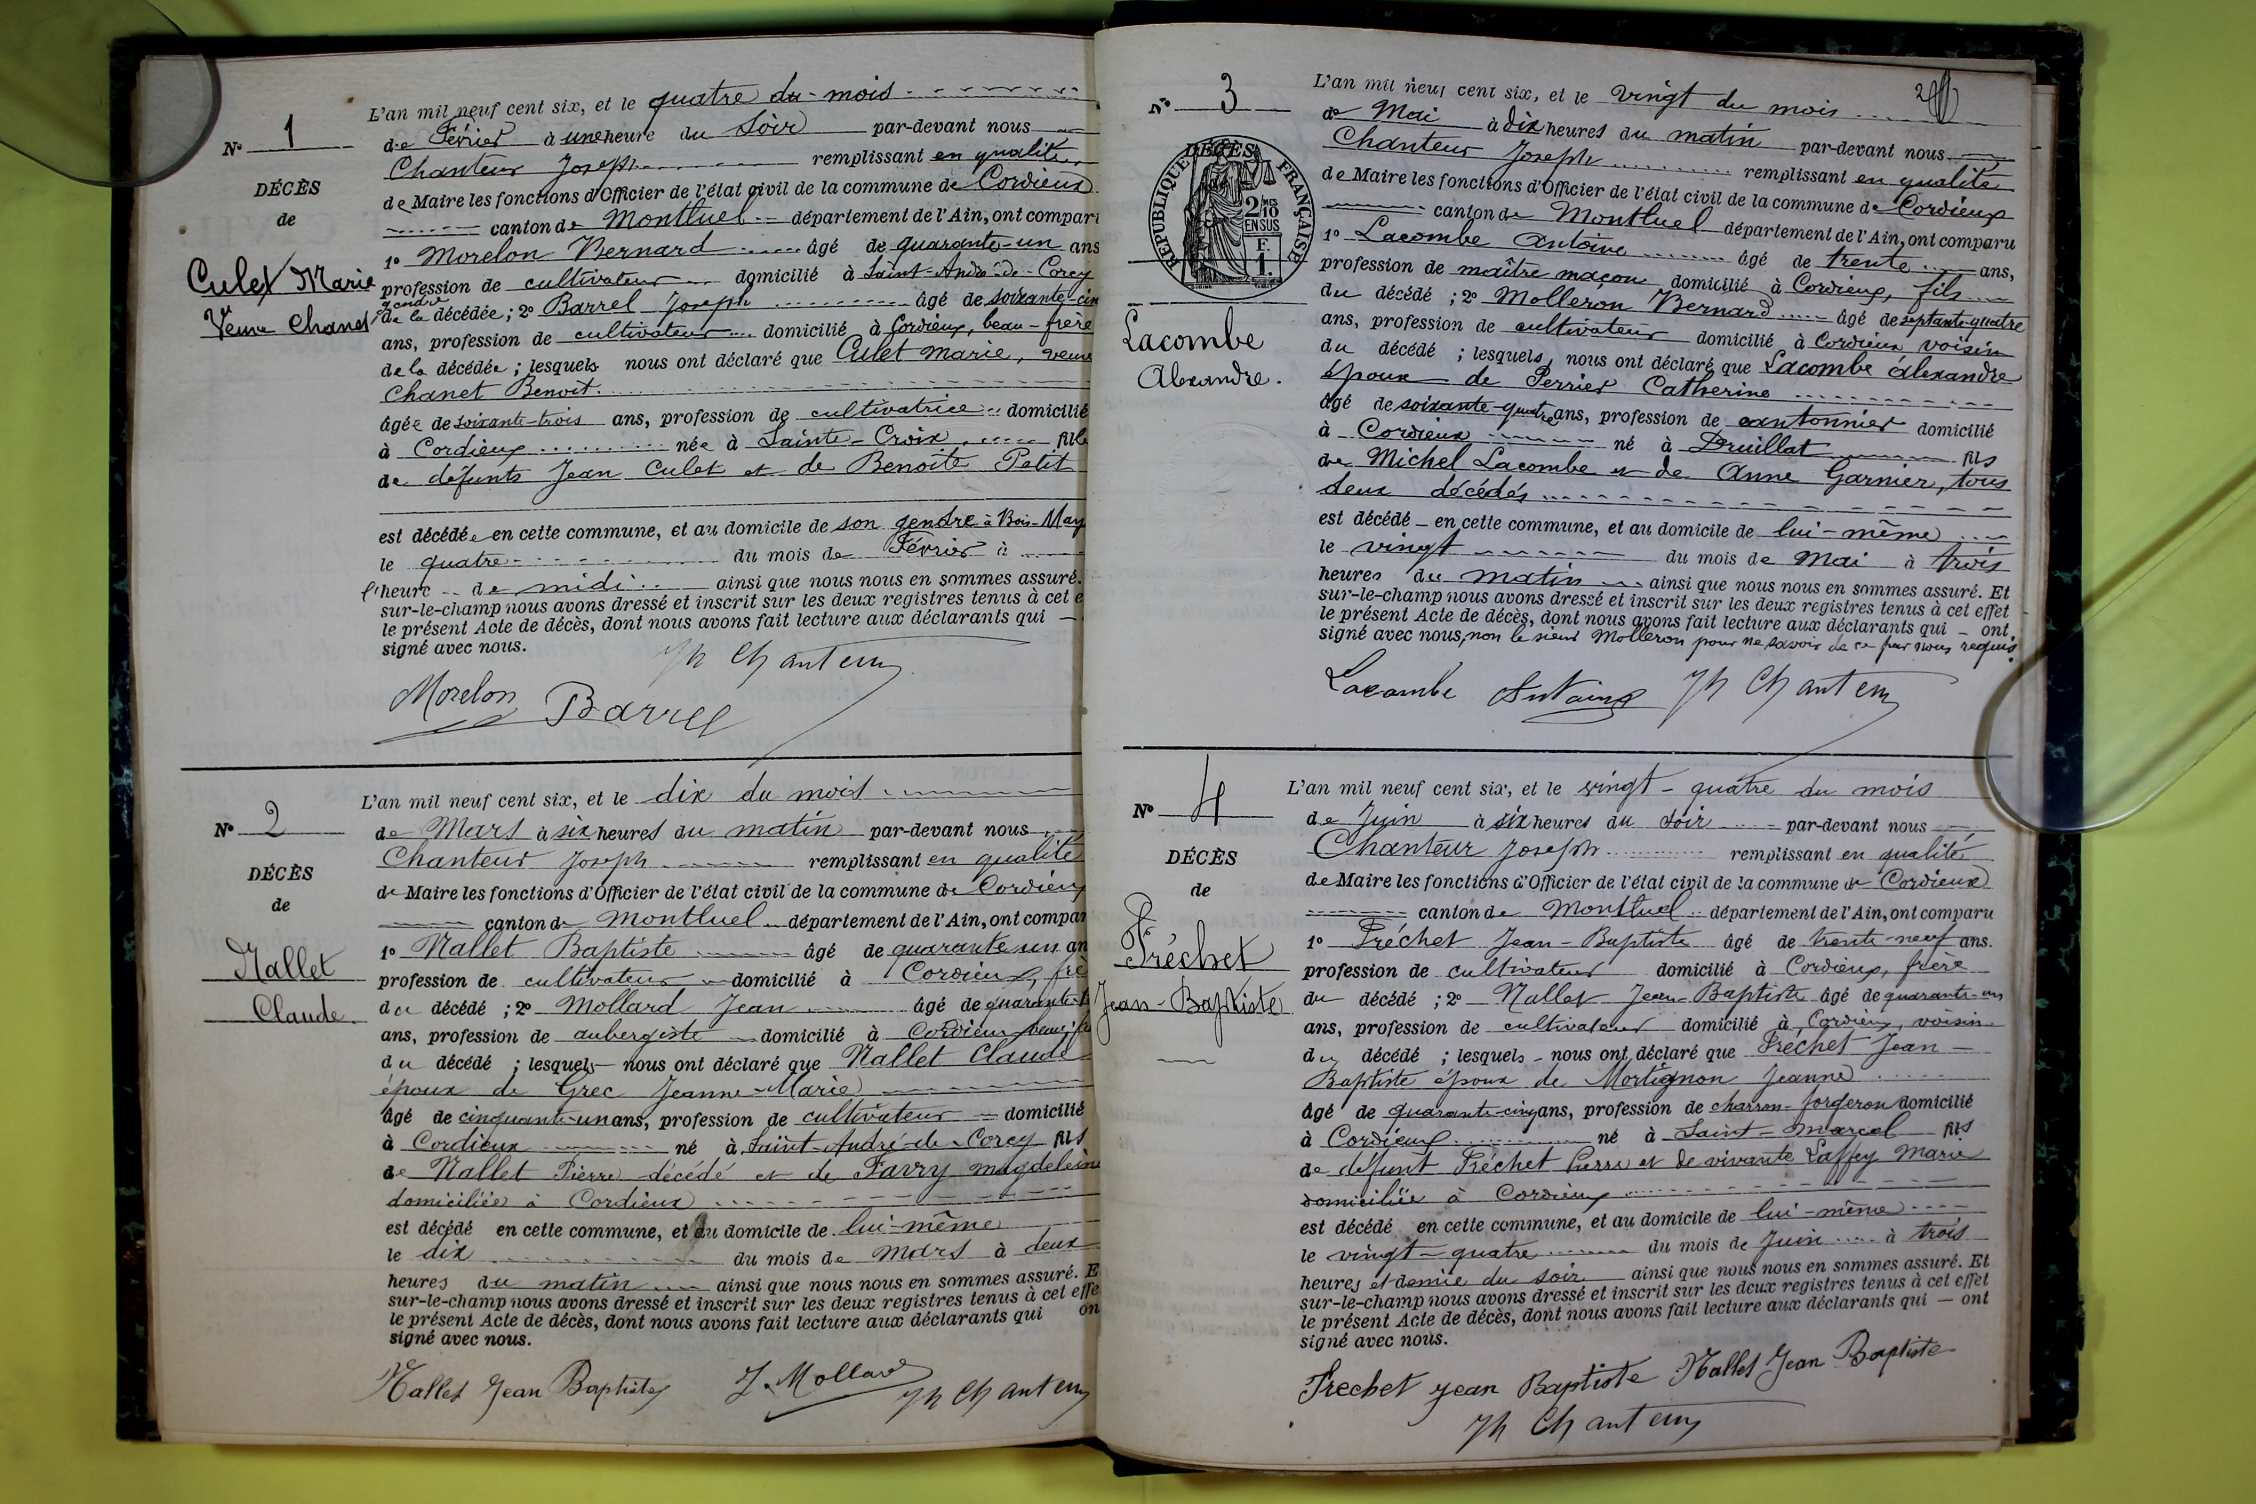 N° 1
DÉCÈS
de
Culet Marie
Veuve Chanet
L'an mil neuf cent six, et le quatre du mois
de Février à une heure du Soir par-devant nous
Chanteur Joseph remplissant en qualité
de Maire les fonctions d'Officier de l'état civil de la commune de Cordieux
canton de Montluel département de l'Ain, ont compar
1° Morelon Bernard âgé de quarante-un ans
profession de cultivateur domicilié à Saint-André-de-Corcy
gendre
de la décédée ; 2° Barrel Joseph âgé de soixante-cin
ans, profession de cultivateur domicilié à Cordieux, beau-frère
de la décédée ; lesquels nous ont déclaré que Culet Marie, veuve
Chanet Benoit.
âgée de soixante-trois ans, profession de cultivatrice domicilié
à Cordieux née à Sainte-Croix fille
de défunts Jean Culet et de Benoite Petit
est décédée en cette commune, et au domicile de son gendre à Bois-May
le quatre du mois de Février à
l'heure de midi ainsi que nous nous en sommes assuré.
sur-le-champ nous avons dressé et inscrit sur les deux registres tenus à cet e
le présent Acte de décès, dont nous avons fait lecture aux déclarants qui —
signé avec nous.
Jh Chanteur
Morelon Barrel
N° 2
DÉCÈS
de
Nallet
Claude
L'an mil neuf cent six, et le dix du mois
de Mars à six heures du matin par-devant nous
Chanteur Joseph remplissant en qualité
de Maire les fonctions d'Officier de l'état civil de la commune de Cordieux
canton de Montluel département de l'Ain, ont compar
1° Nallet Baptiste âgé de quarante un an
profession de cultivateur domicilié à Cordieux, frè
du décédé ; 2° Mollard Jean âgé de quarante
ans, profession de aubergiste domicilié à Cordieux
du décédé ; lesquels — nous ont déclaré que Nallet Claude
époux de Grec Jeanne-Marie
âgé de cinquante-un ans, profession de cultivateur domicilié
à Cordieux né à Saint-André-de-Corcy fils
de Nallet Pierre décédé et de Favry magdeleine
domiciliée à Cordieux
est décédé en cette commune, et au domicile de lui-même
le dix du mois de Mars à deux
heures du matin ainsi que nous nous en sommes assuré. E
sur-le-champ nous avons dressé et inscrit sur les deux registres tenus à cet effe
le présent Acte de décès, dont nous avons fait lecture aux déclarants qui on
signé avec nous.
Nallet Jean Baptiste J. Mollard Jh Chanteur
N° 3
RÉPUBLIQUE FRANÇAISE
DÉCÈS
2/10 MES
EN SUS
F.
1.
Lacombe
Alexandre.
L'an mil neuf cent six, et le vingt du mois
de Mai à dix heures du matin par-devant nous
Chanteur Joseph remplissant en qualité
de Maire les fonctions d'Officier de l'état civil de la commune de Cordieux
canton de Montluel département de l'Ain, ont comparu
1° Lacombe Antoine âgé de trente ans,
profession de maître maçon domicilié à Cordieux, fils
du décédé ; 2° Molleron Bernard âgé de septante-quatre
ans, profession de cultivateur domicilié à Cordieux voisin
du décédé ; lesquels, nous ont déclaré que Lacombe Alexandre
époux de Perrier Catherine
âgé de soixante-quatre ans, profession de cantonnier domicilié
à Cordieux né à Druillat fils
de Michel Lacombe et de Anne Garnier, tous
deux décédés
est décédé — en cette commune, et au domicile de lui-même
le vingt du mois de Mai à trois
heures du matin ainsi que nous nous en sommes assuré. Et
sur-le-champ nous avons dressé et inscrit sur les deux registres tenus à cet effet
le présent Acte de décès, dont nous avons fait lecture aux déclarants qui — ont
signé avec nous, non le sieur Molleron pour ne savoir de ce par nous requis.
Lacombe Antoine Jh Chanteur
N° 4
DÉCÈS
de
Fréchet
Jean-Baptiste
L'an mil neuf cent six, et le vingt-quatre du mois
de Juin à six heures du soir par-devant nous
Chanteur Joseph remplissant en qualité
de Maire les fonctions d'Officier de l'état civil de la commune de Cordieux
canton de Montluel département de l'Ain, ont comparu
1° Fréchet Jean-Baptiste âgé de trente-neuf ans.
profession de cultivateur domicilié à Cordieux, frère
du décédé ; 2° Nallet Jean-Baptiste âgé de quarante-un
ans, profession de cultivateur domicilié à Cordieux, voisin
du décédé ; lesquels - nous ont déclaré que Fréchet Jean-
Baptiste époux de Mortignon Jeanne
âgé de quarante-cinq ans, profession de charron-forgeron domicilié
à Cordieux né à Saint-Marcel fils
de défunt Fréchet Pierre et de vivante Laffay Marie
domiciliée à Cordieux
est décédé en cette commune, et au domicile de lui-même
le vingt-quatre du mois de Juin à trois
heures et demie du soir ainsi que nous nous en sommes assuré. Et
sur-le-champ nous avons dressé et inscrit sur les deux registres tenus à cet effet
le présent Acte de décès, dont nous avons fait lecture aux déclarants qui — ont
signé avec nous.
Frechet Jean Baptiste Nallet Jean Baptiste
Jh Chanteur